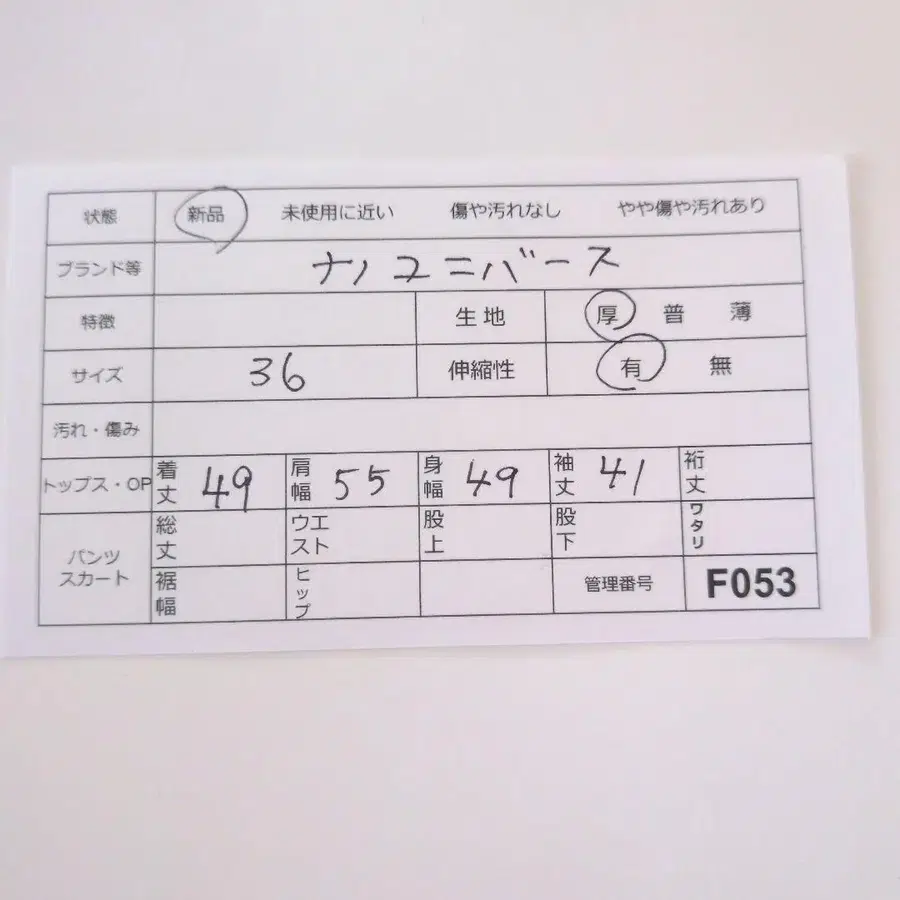 状態 新品 未使用に近い 傷や汚れなし やや傷や汚れあり
ブランド等 ナノユニバース
特徴 生地 厚 普 薄
サイズ 36 伸縮性 有 無
汚れ・傷み
トップス・OP 着丈 49 肩幅 55 身幅 49 袖丈 41 裄丈
パンツ
スカート
総丈 ウエスト 股上 股下 ワタリ
裾幅 ヒップ 管理番号 F053